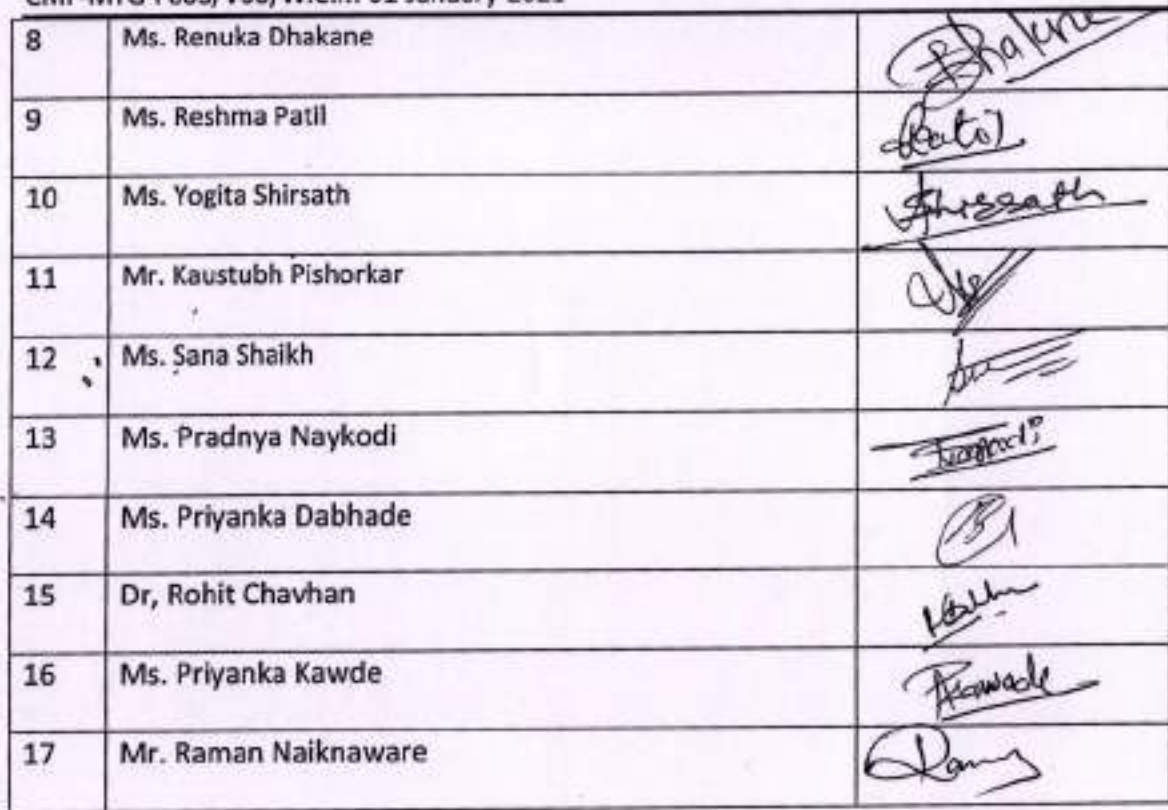 8 Ms. Renuka Dhakane Dhakne
9 Ms. Reshma Patil Patil
10 Ms. Yogita Shirsath Shirsath
11 Mr. Kaustubh Pishorkar
12 Ms. Sana Shaikh
13 Ms. Pradnya Naykodi
14 Ms. Priyanka Dabhade
15 Dr, Rohit Chavhan
16 Ms. Priyanka Kawde PKawade
17 Mr. Raman Naiknaware